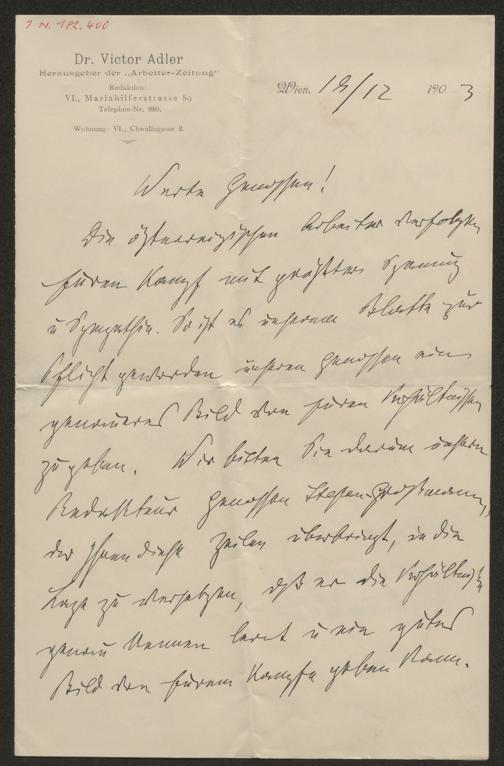 J.N. 182.400
Dr. Victor Adler
Herausgeber der „Arbeiter-Zeitung“
Redaktion:
VI., Mariahilferstrasse 89
Telephon-Nr. 880.
Wohnung: VI., Chwallagasse 2.
Wien, 19/12 1903
Werte Genossen!
Die österreichischen Arbeiter verfolgen
Euren Kampf mit größter Spannung
u Sympathie. So ist es unserem Blatte zur
Pflicht geworden unseren Genossen ein
genaueres Bild von Euren Verhältnissen
zu geben. Wir bitten Sie darum unsern
Redakteur Genossen Stefan Großmann,
der Ihnen diese Zeilen überbringt, in die
Lage zu versetzen, daß er die Verhältnisse
genau kennen lernt u ein gutes
Bild von Eurem Kampfe geben kann.